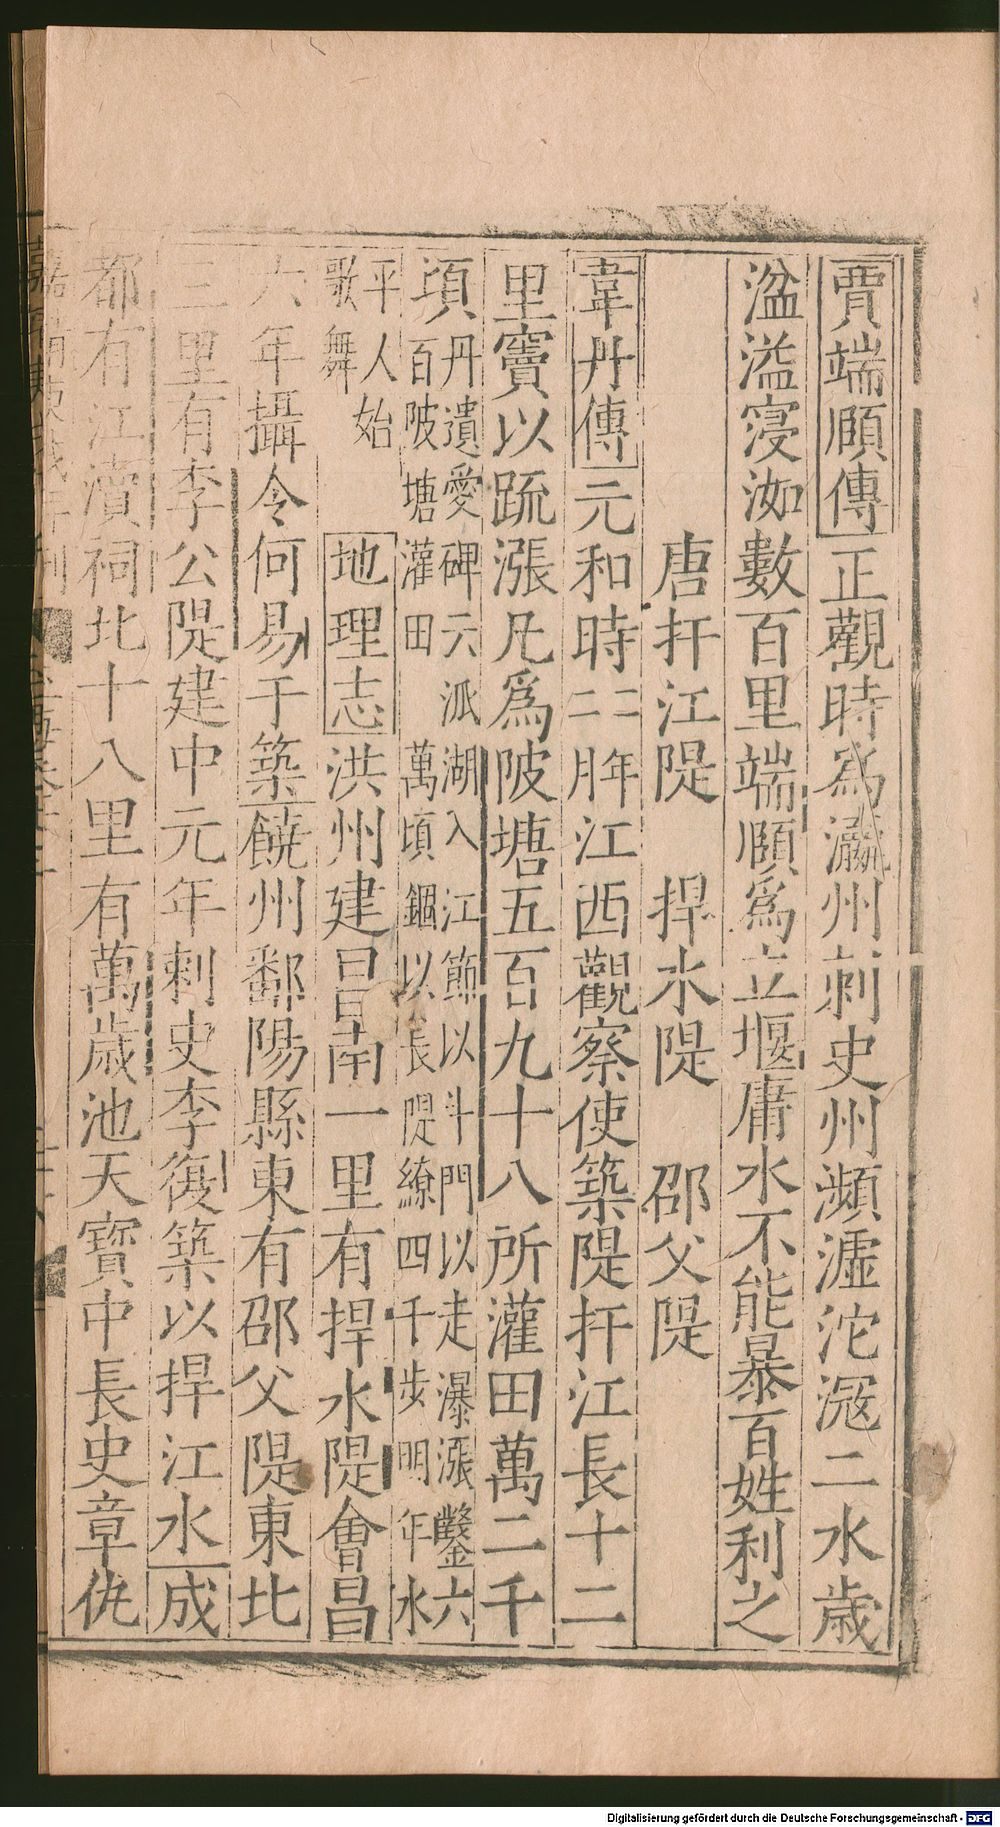 賈端頤傳正觀時為瀛州刺史州瀕滹沱㓂二水歲
湓溢寖洳數百里端頤為立堰庸水不能暴百姓利之
唐扞江隄　捍水隄　邵父隄
韋丹傳元和時二年二月江西觀察使築隄扞江長十二
里竇以䟽漲凡為陂塘五百九十八所灌田萬二千
項丹遺愛碑云派湖入江節以斗門以走瀑漲鑿六
百陂塘灌田萬頃錮以長隄繚四千步明年水
平人始
歌舞
地理志洪州建昌南一里有捍水隄會昌
六年攝令何易于築饒州鄱陽縣東有邵父隄東北
三里有李公隄建中元年刺史李復築以捍江水成
都有江瀆祠北十八里有萬歲池天寶中長史章仇
Digitalisierung gefördert durch die Deutsche Forschungsgemeinschaft - DFG